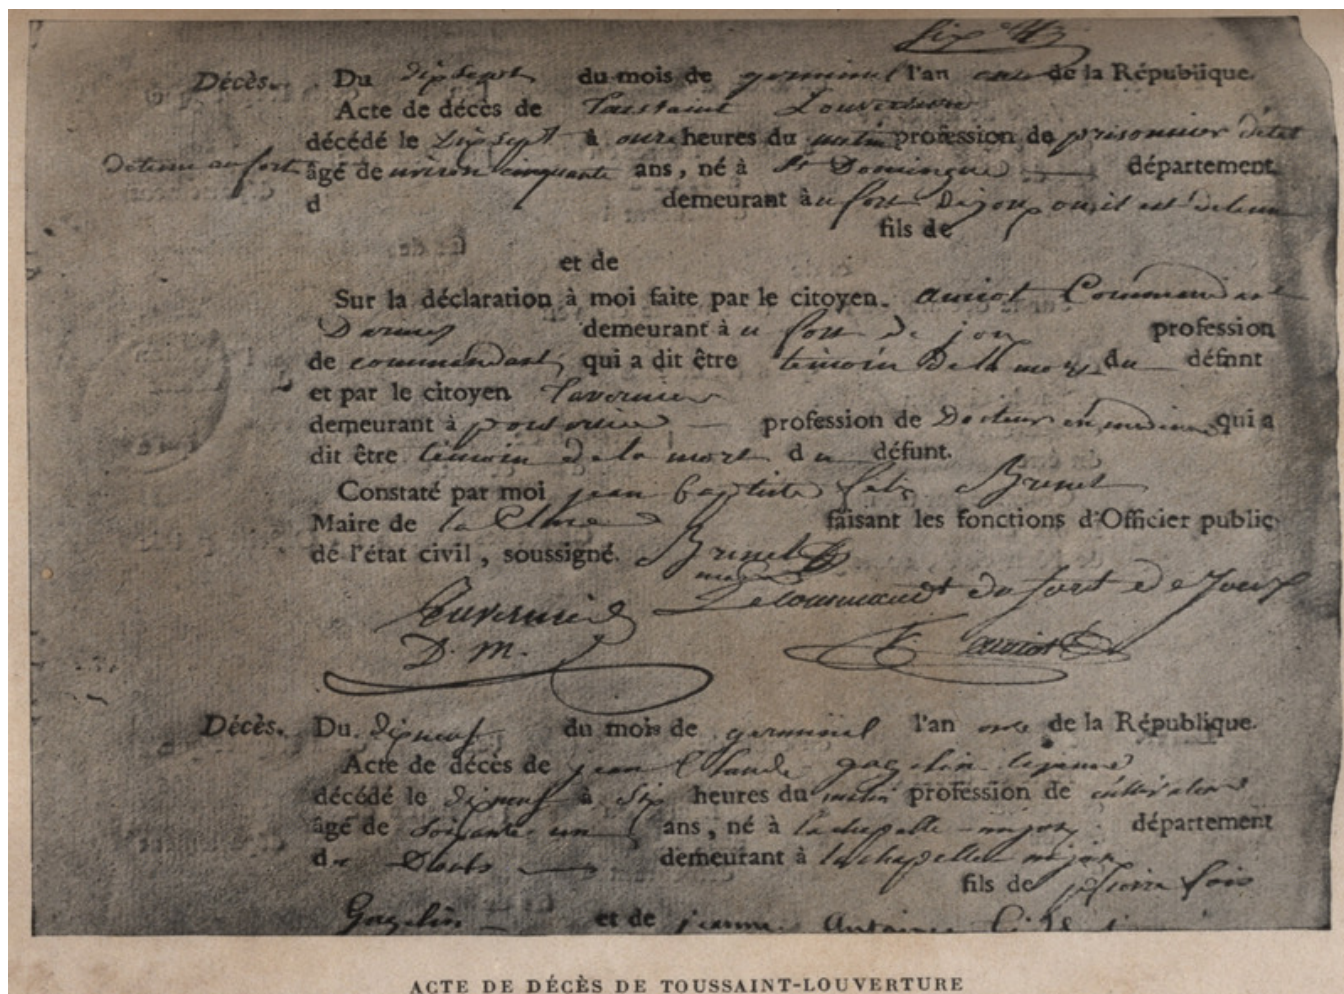 Décès. Du dix sept du mois de germinal l'an onze de la République.
Acte de décès de Toussaint Louverture
décédé le dix sept à onze heures du matin profession de prisonnier d'état
detenu au fort âgé de environ cinquante ans, né à St Domingue département
d demeurant à u fort de joux ou il est detenu
fils de
et de
Sur la déclaration à moi faite par le citoyen amiot Commandant
Darmes demeurant à u fort de joux profession
de commandant, qui a dit être temoin de la mort du défunt
et par le citoyen Tavernier
demeurant à pontarlier profession de Docteur en medecine qui a
dit être témoin de la mort du défunt.
Constaté par moi jean baptiste Brenet
Maire de la Cluse faisant les fonctions d'Officier public
de l'état civil, soussigné. Brenet
Le commandt du fort de Joux
Tavernier
D. m. amiot
Décès. Du dix neuf du mois de germinal l'an onze de la République.
Acte de décès de jean Claude gagelin
décédé le dix neuf à six heures du matin profession de cultivateur
âgé de soixante un ans, né à la chapelle mijoux département
du Doubs demeurant à la chapelle mijoux
fils de fois
Gagelin et de jeanne Antoine
ACTE DE DÉCÈS DE TOUSSAINT-LOUVERTURE